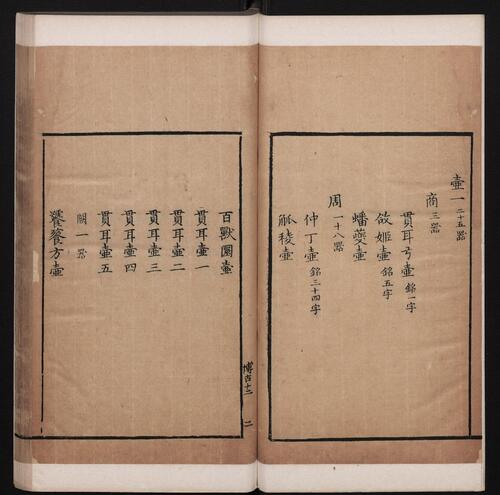 壺一二十五器
商三器
貫耳弓壺銘一字
欱姬壺銘五字
蟠夔壺
周一十八器
仲丁壺銘三十四字
觚稜壺
博古十二
二
百獸圜壺
貫耳壺一
貫耳壺二
貫耳壺三
貫耳壺四
貫耳壺五
闕一器
饕餮方壺